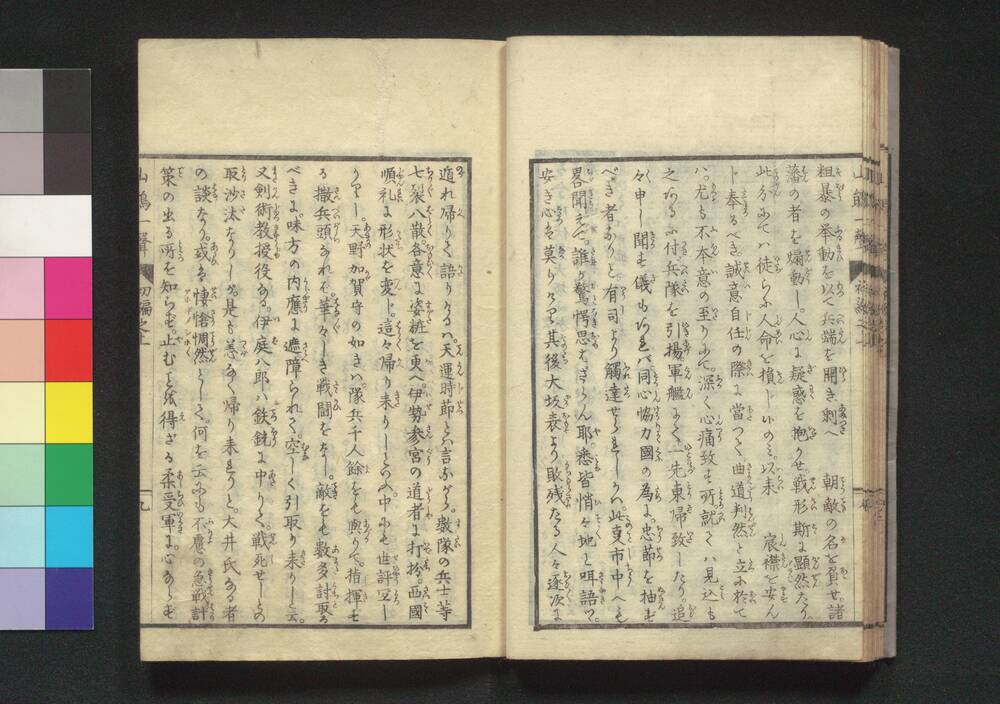 粗暴の挙動を以て兵端を開き剰へ 朝敵の名を負せ諸
藩の者を煽動し。人心に疑惑を抱かせ戦形斯に顕然たり。
此分にてハ徒らに人命を損じ候のミ。以来 宸襟を安ん
じ奉るべき誠意自任の際に当つて。曲直判然と立に於て
ハ。尤も不本意の至りにて。深く心痛致す所就てハ見込も
之あるに付兵隊を引揚軍艦にて。一先東帰致したり。追
々申し聞す儀もあれバ同心協力國の為に忠節を抽ず
べき者なりと有司より觸達せられしかバ。此夏市中へも
畧聞えて。誰か驚愕思はざらん耶。悉皆悄々地と咡語て。
安き心ハ莫りけり。其後大坂表より敗残たる人々逐次に
遁れ帰りて語りけるハ。天運時節と六言ながら。数隊の兵士等
七裂八散各意に姿粧を更へ。伊勢参宮の道者に打扮。西國
順礼に形状を変じ。這々帰り来りしとハ。中にも世評宜し
かりし。天野加賀守の如きハ。隊兵千人餘をも與りて。指揮す
る撒兵頭なれバ。華々しき戦闘をなし。敵をも数多討取る
べきに。味方の内應に遮障られて。空しく引取り来りしと云。
又剣術教授役なる。伊庭八郎ハ鉄銃に中りて。戦死せしとの
取沙汰なりしが。是も恙なく帰り来ると。大井氏なる者
の談なり。或ハ悽愴惆然として。何を云にも不慮の急戦計
策の出る所を知らず。止むことを得ざる柔受軍に。心あらも
山鵑一聲 初編之上 十九